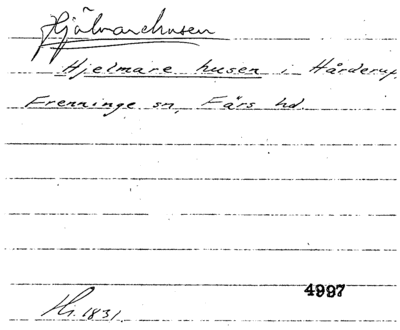 Hjälmarehusen
Hjelmare husen i Hårderup,
Frenninge sn, Färs hd.
4997
Hi. 1831